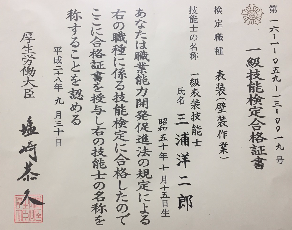 第一六-一-〇五九-一三-〇〇一九号
一級技能検定合格証書
検定職種 表装(壁装作業)
技能士の名称 一級表装技能士
氏名 三浦洋二郎
昭和五十年十月十五日生
あなたは職業能力開発促進法の規定による
右の職種に係る技能検定に合格したので
ここに合格証書を授与し右の技能士の名称を
称することを認める
平成二十八年九月三十日
厚生労働大臣
塩崎恭久